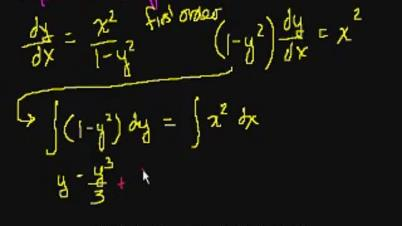 dy/dx = x²/(1-y²) first order (1-y²) dy/dx = x²
∫(1-y²) dy = ∫ x² dx
y - y³/3 +